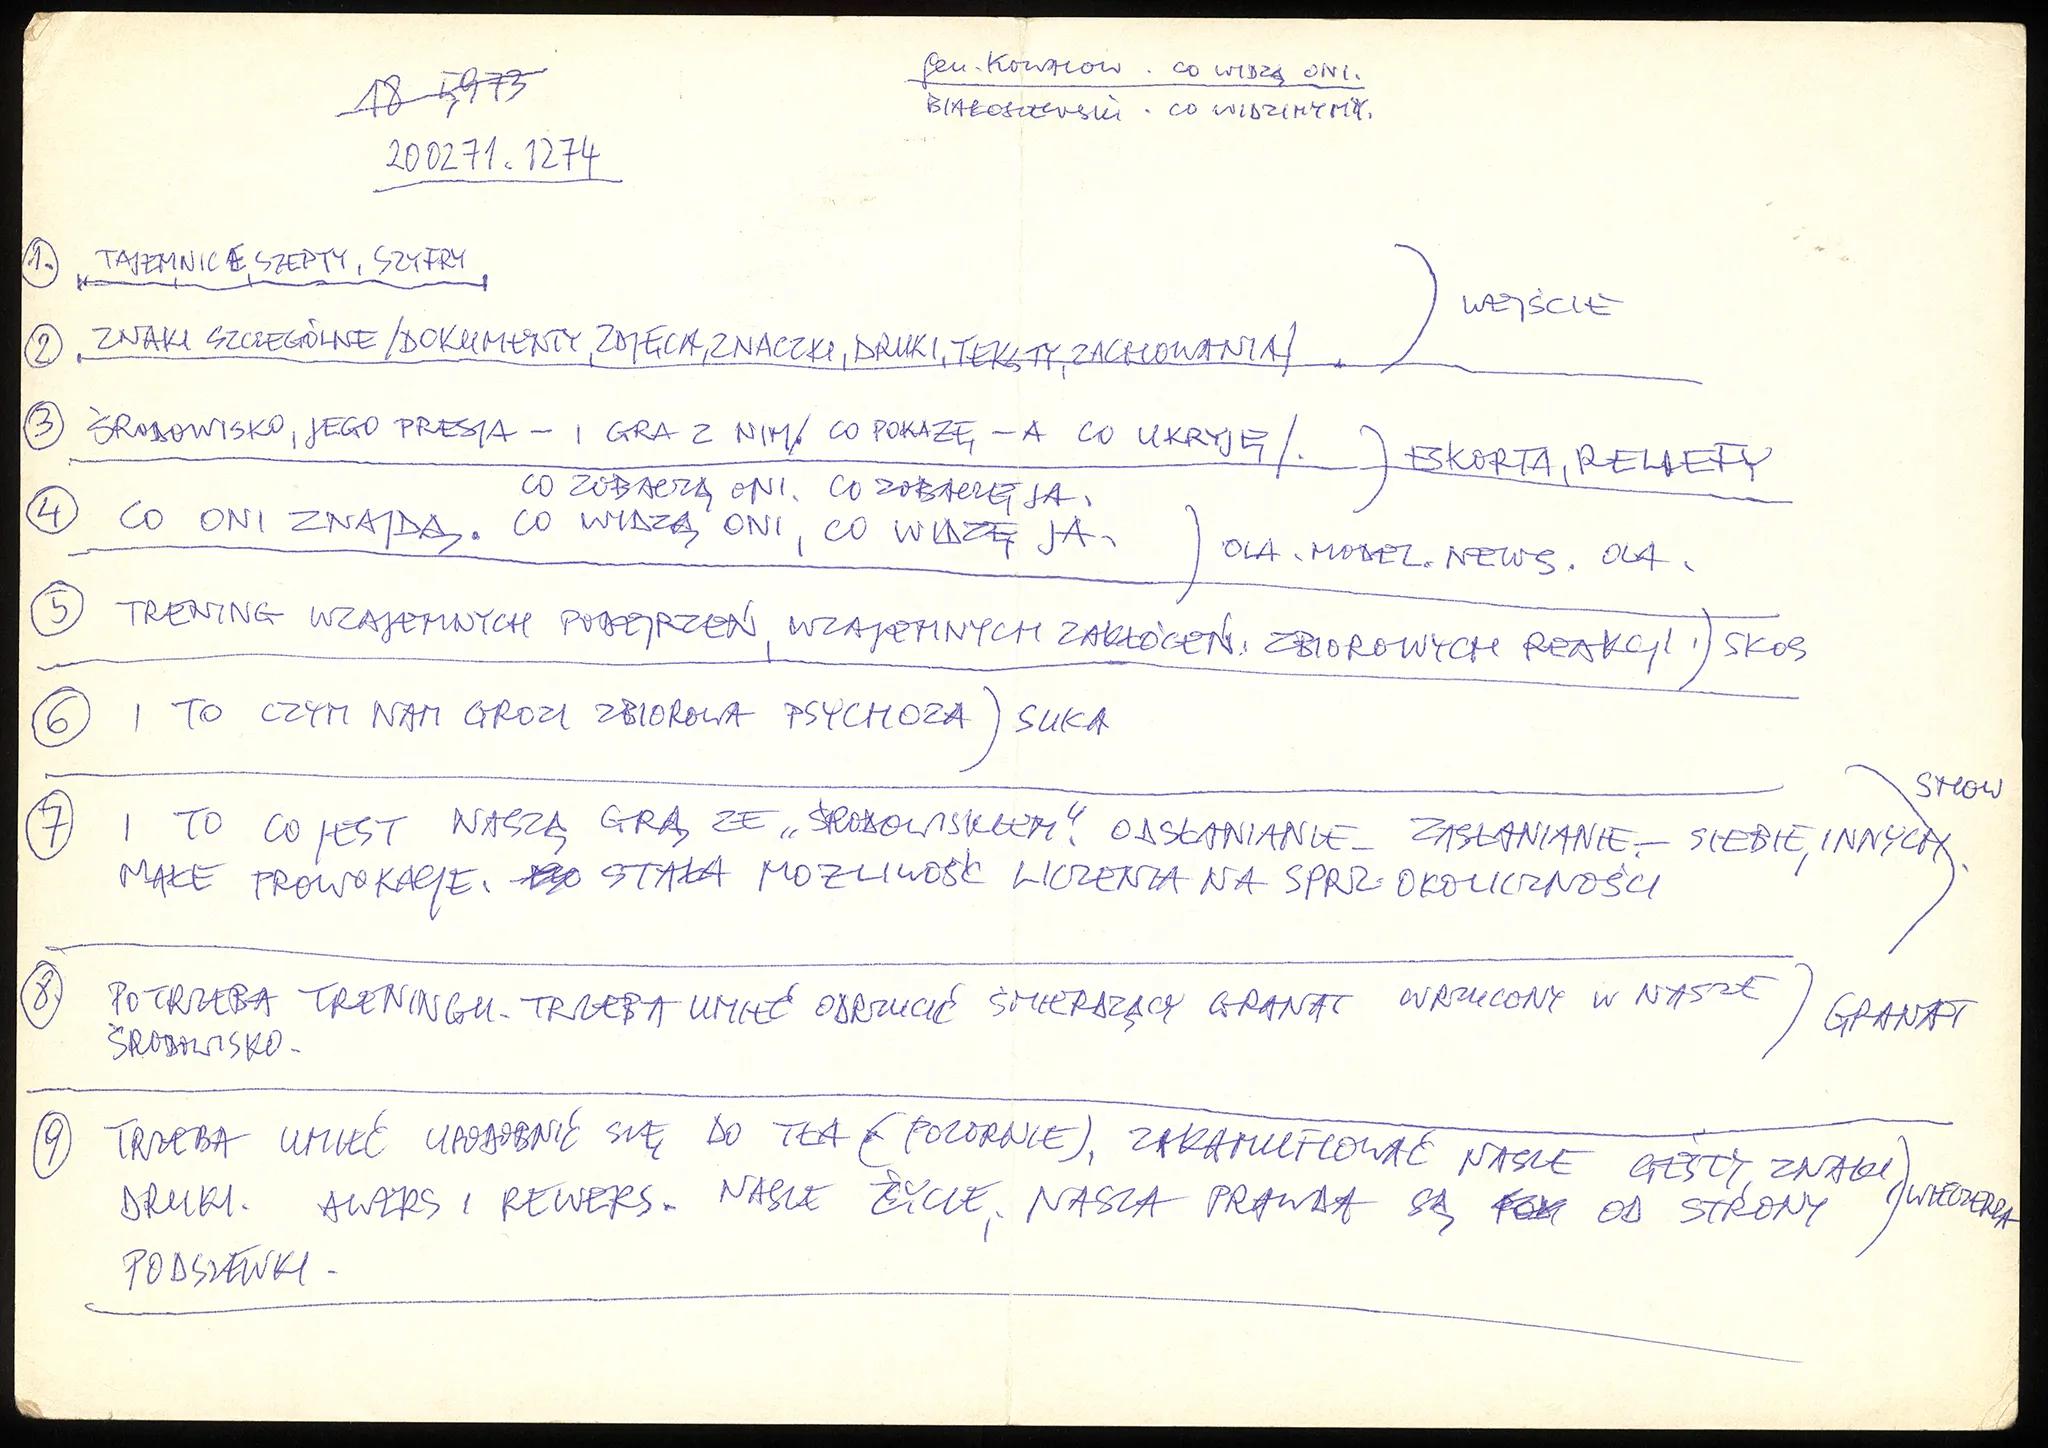 18 5,973
200271.1274
gen. KOWALOW. CO WIDZĄ ONI.
BIAŁOSZEWSKI. CO WIDZIMY MY.
1. TAJEMNICE, SZEPTY, SZYFRY
2. ZNAKI SZCZEGÓLNE /DOKUMENTY, ZDJĘCIA, ZNACZKI, DRUKI, TEKSTY, ZACHOWANIA/.
WEJŚCIE
3 ŚRODOWISKO, JEGO PRESJA – I GRA Z NIM / CO POKAŻĘ, – A CO UKRYJĘ/.
ESKORTA, RELIEFY
CO ZOBACZĄ ONI. CO ZOBACZĘ JA.
4 CO ONI ZNAJDĄ. CO WIDZĄ ONI, CO WIDZĘ JA.
OLA. MODEL. NEWS. OLA.
5 TRENING WZAJEMNYCH PODEJRZEŃ, WZAJEMNYCH ZAKŁÓCEŃ. ZBIOROWYCH REAKCJI.) SKOS
6 I TO CZYM NAM GROZI ZBIOROWA PSYCHOZA) SUKA
7 I TO CO JEST NASZĄ GRĄ ZE „ŚRODOWISKIEM". ODSŁANIANIE – ZASŁANIANIE – SIEBIE, INNYCH.
SHOW
MAŁE PROWOKACJE. STAŁA MOŻLIWOŚĆ LICZENIA NA SPRZ. OKOLICZNOŚCI
8. POTRZEBA TRENINGU. TRZEBA UMIEĆ ODRZUCIĆ ŚMIERDZĄCY GRANAT WRZUCONY W NASZE
ŚRODOWISKO.
GRANAT
9 TRZEBA UMIEĆ UPODOBNIĆ SIĘ DO TŁA (POZORNIE), ZAKAMUFLOWAĆ NASZE GESTY, ZNAKI,
DRUKI. AWERS I REWERS. NASZE ŻYCIE, NASZA PRAWDA SĄ OD STRONY
WIECZERZA
PODSZEWKI.